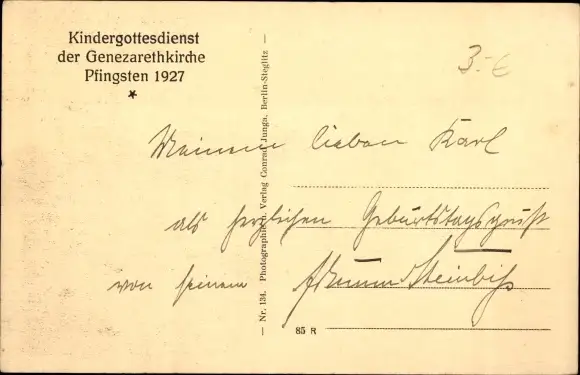 Kindergottesdienst
der Genezarethkirche
Pfingsten 1927
*
3.-€
Meinem lieben Karl
als herzlichen Geburtstagsgruß
von seinem Steinbiß
— Nr. 134. Photographie u. Verlag Conrad Junga, Berlin-Steglitz —
85 R